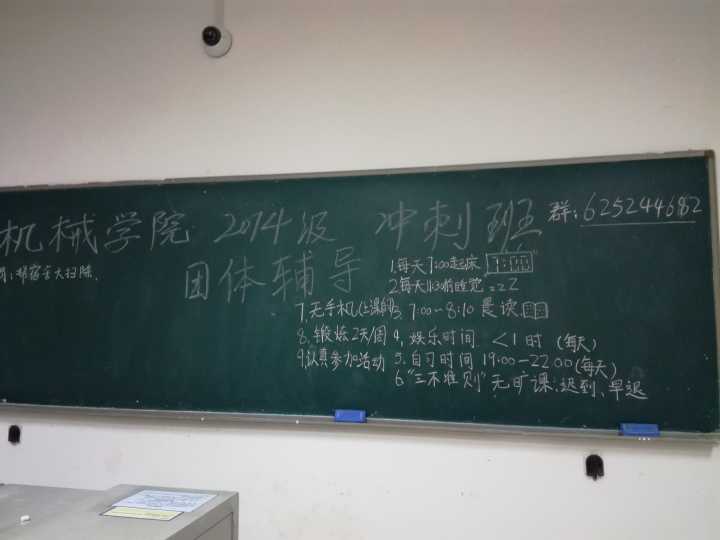 机械学院 2014级 冲刺班 群:625244682
团体辅导
帮宿舍大扫除.
1.每天7:00起床 7:00
2.每天11:30前睡觉 zzZ
3.7:00~8:10 晨读
4.娱乐时间 <1时(每天)
5.自习时间 19:00-22:00(每天)
6."三不准则"无旷课.迟到、早退
7.无手机(上课时)
8.锻炼2天/周
9.认真参加活动